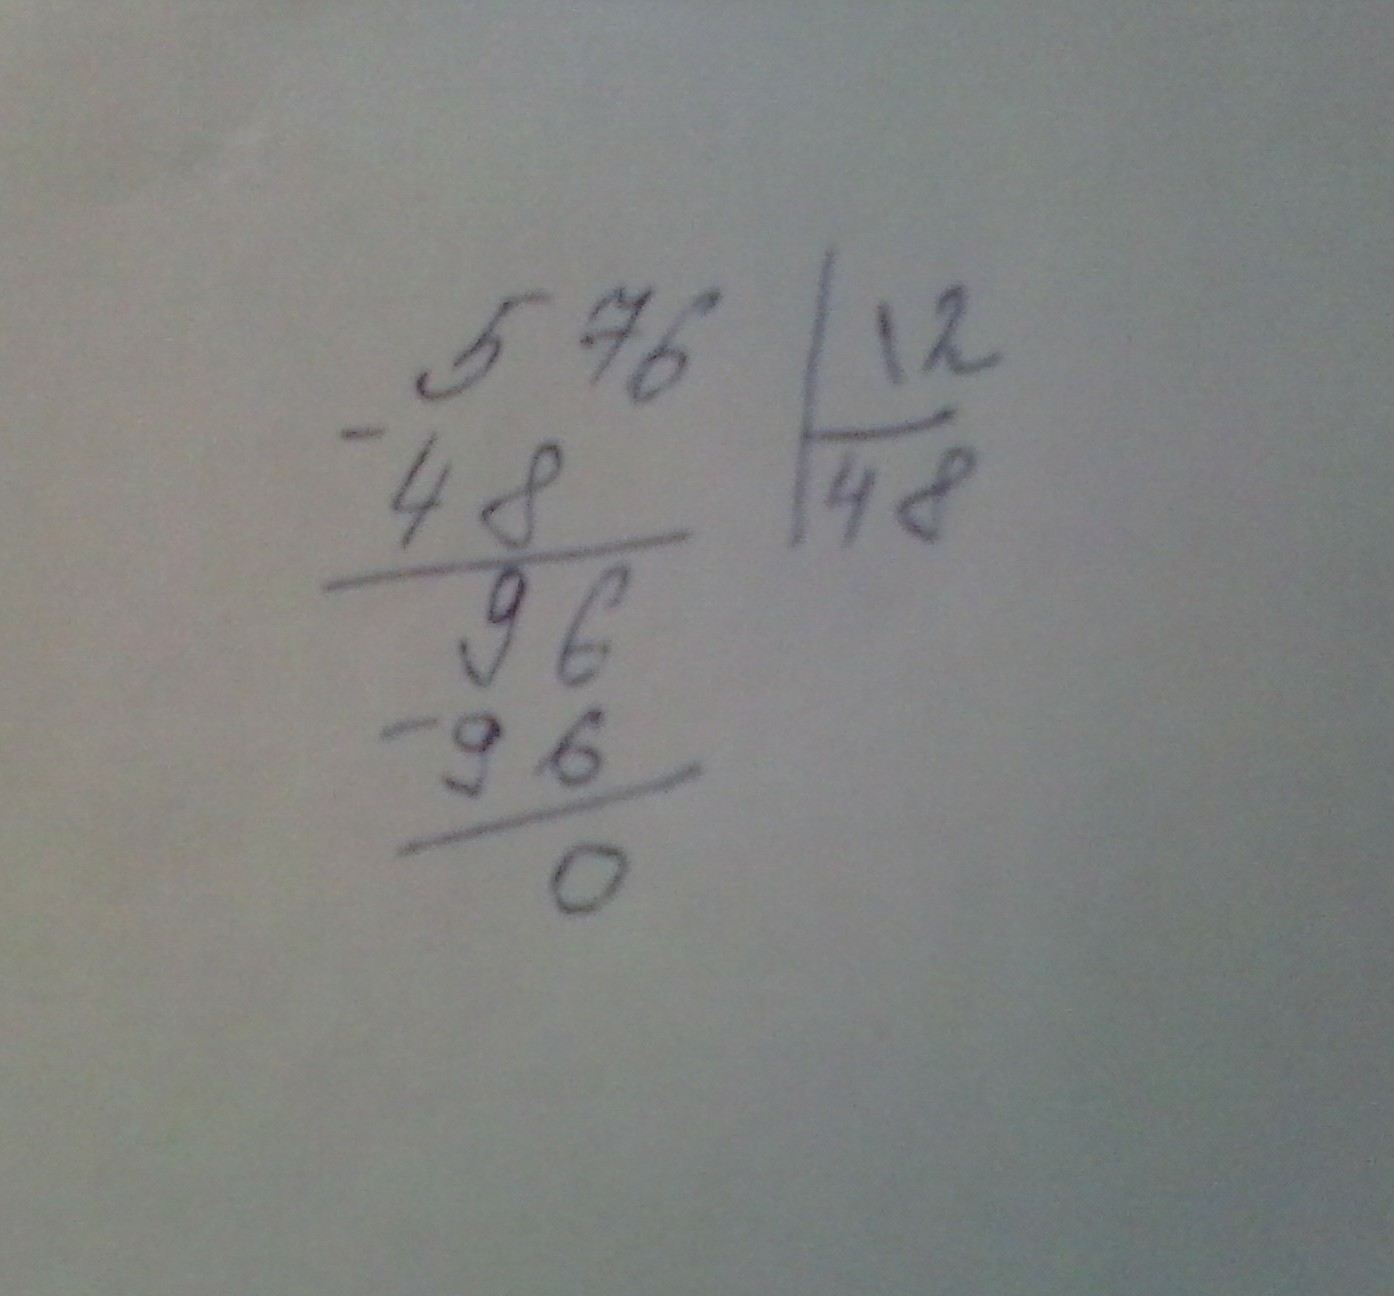 576 | 12
- 48 | 48
96
- 96
0